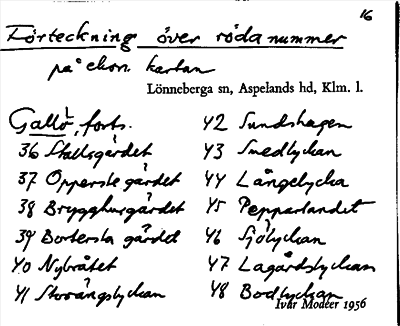 16
Förteckning över röda nummer
på ekon. kartan
Lönneberga sn, Aspelands hd, Klm. l.
Gallö, forts.
36 Stallsgärdet
37 Oppersta gärdet
38 Brygghusgärdet
39 Bortersta gärdet
40 Nybråtet
41 Storängslyckan
42 Sundshagen
43 Smedlyckan
44 Långelycka
45 Pepparlandet
46 Sjölyckan
47 Lagårdslyckan
48 Bodlyckan
Ivar Modéer 1956